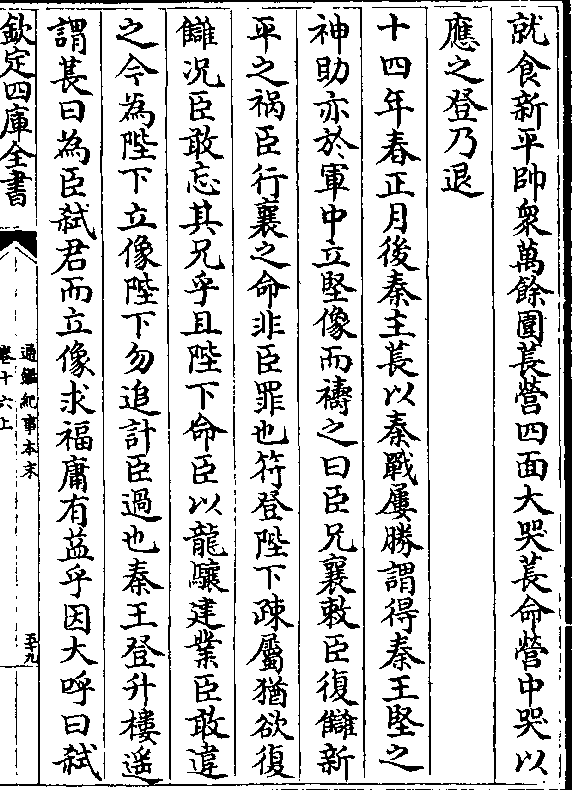 就食新平帥衆萬餘圍萇營四面大哭萇命營中哭以
應之登乃退
十四年春正月後秦主萇以秦戰屢勝謂得秦王堅之
神助亦於軍中立堅像而禱之曰臣兄襄敕臣復讎新
平之禍臣行襄之命非臣罪也符登陛下疎屬猶欲復
讎况臣敢忘其兄乎且陛下命臣以龍驤建業臣敢違
之今為陛下立像陛下勿追計臣過也秦王登升樓遥
謂萇曰為臣弑君而立像求福庸有益乎因大呼曰弑
欽定四庫全書
通鑑紀事本末
卷十六上
五十九